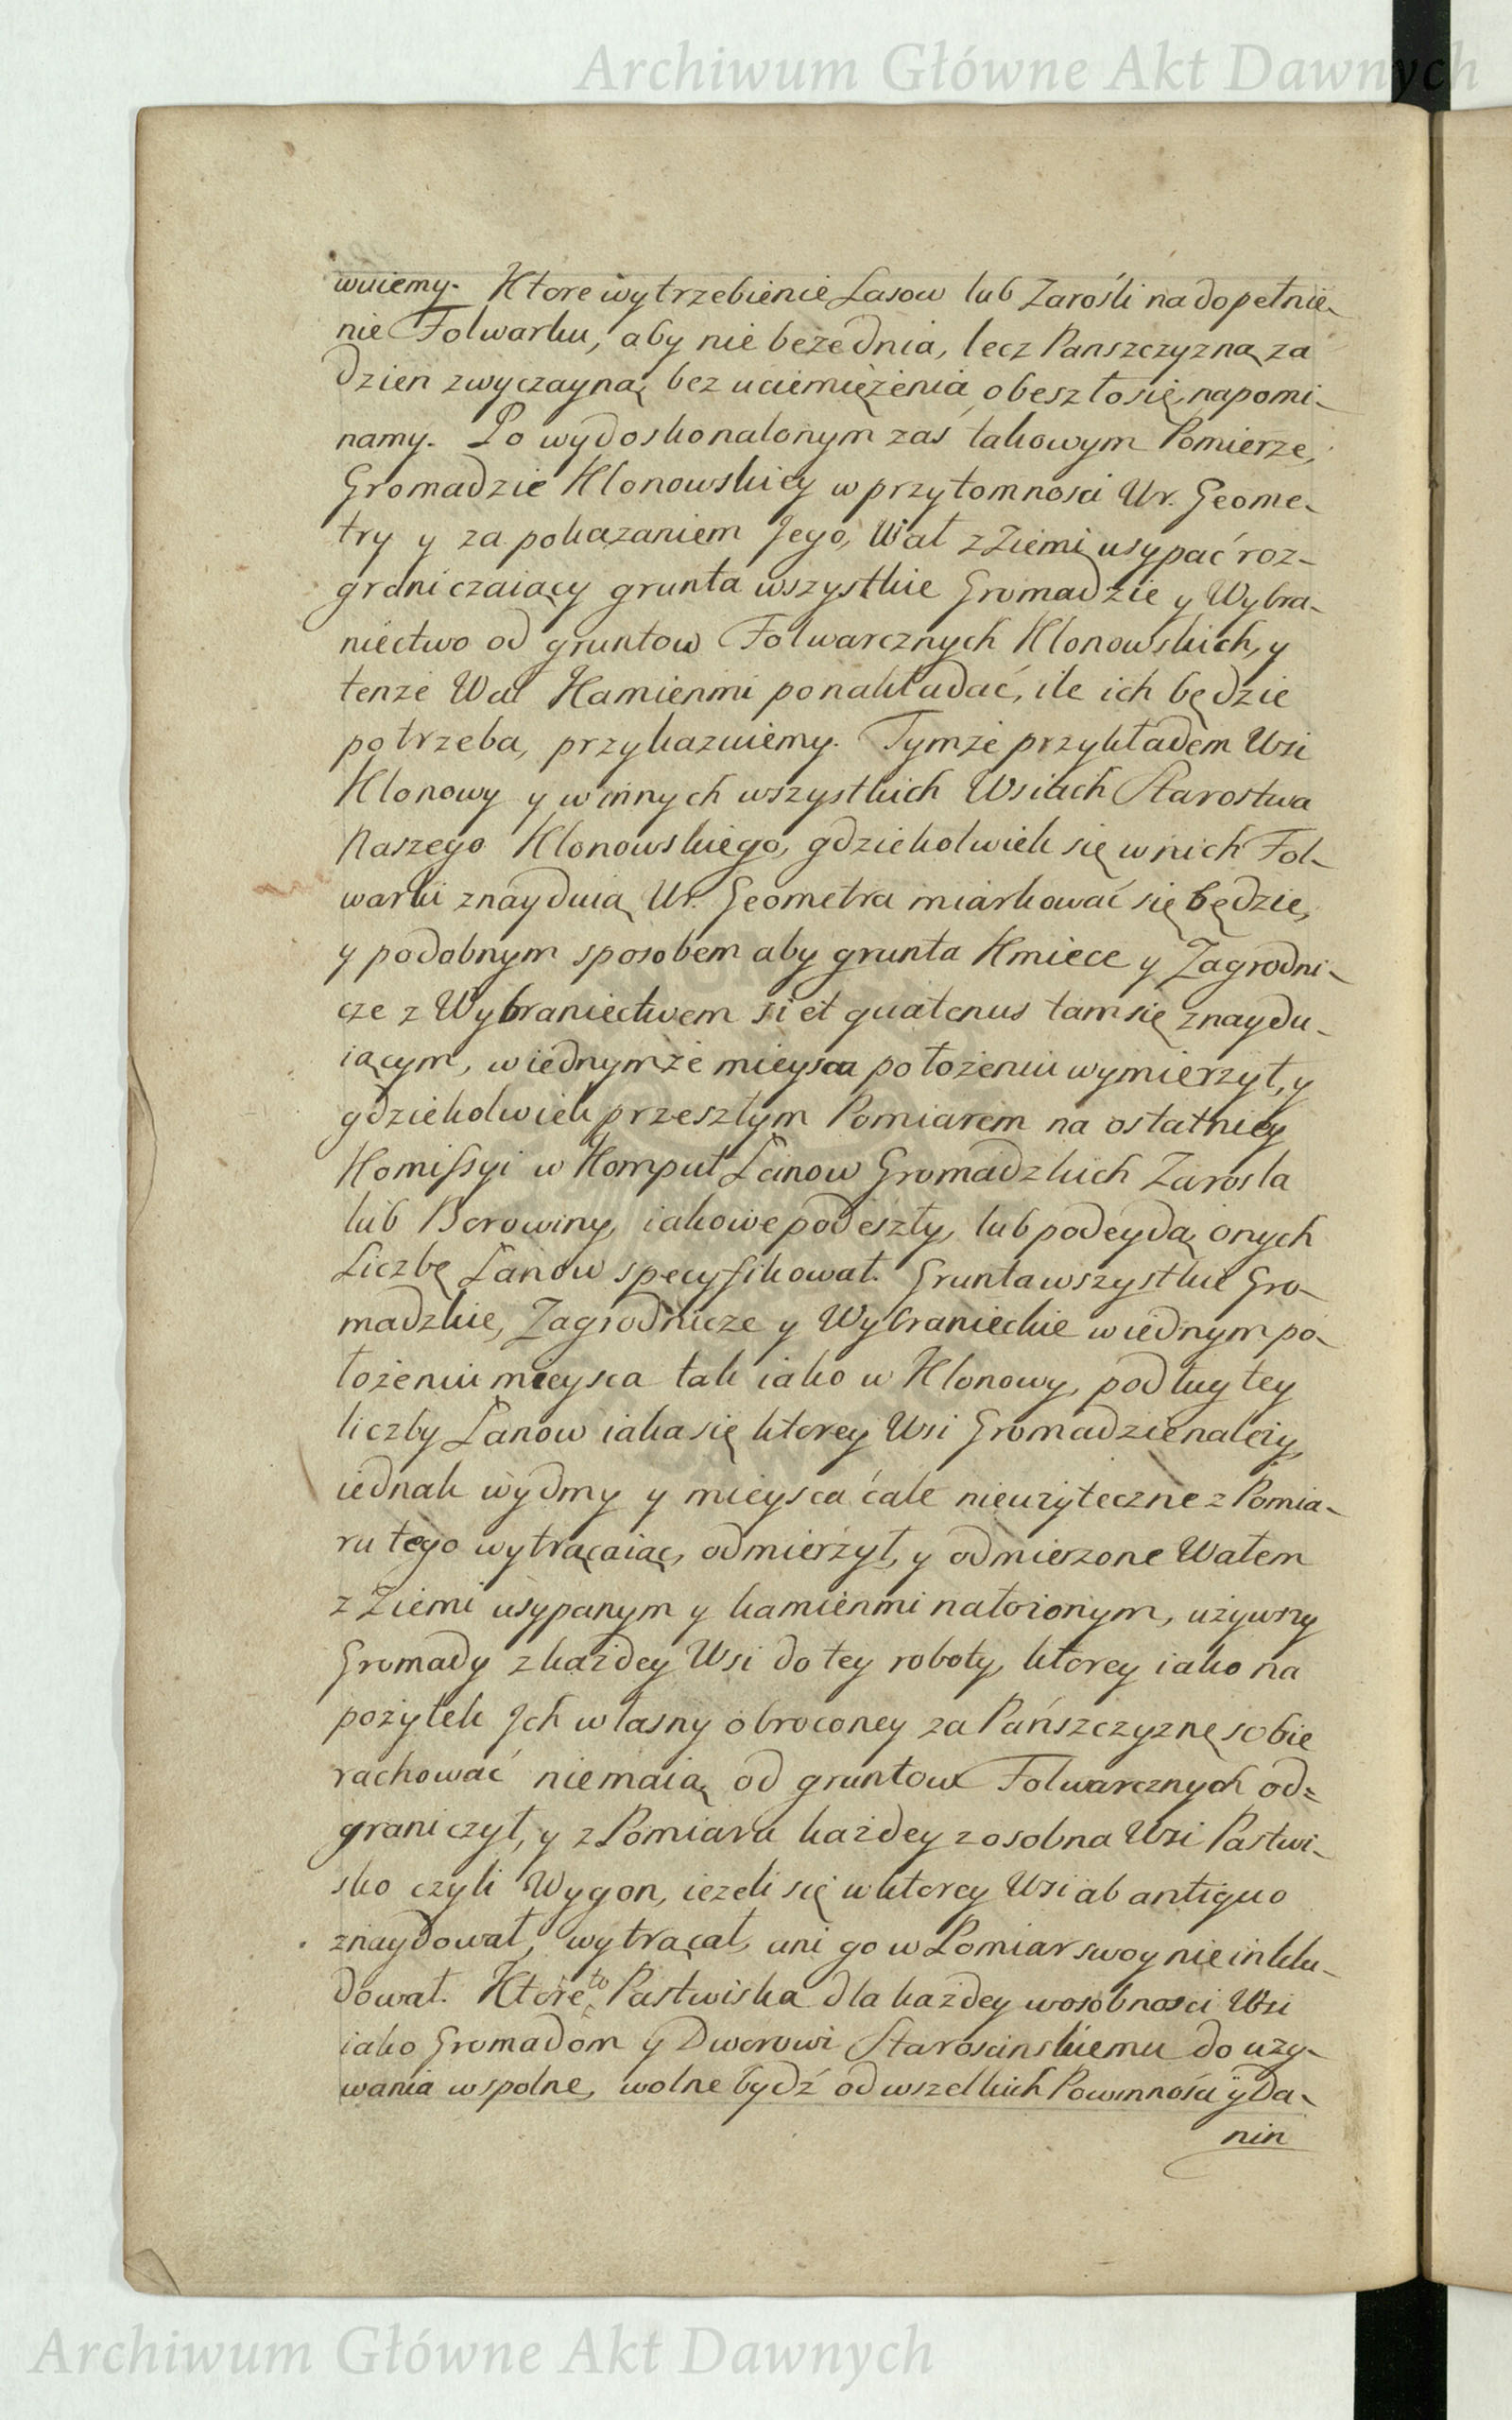 Archiwum Główne Akt Dawnych
wuiemy. Ktore wytrzebienie Lasow lub Zarośli na dopełnie-
nie Folwarku, aby nie beze dnia, lecz Panszczyzną za
dzien zwyczayną, bez uciemiężenia obeszło się, napomi-
namy. Po wydoskonalonym zaś takowym Pomierze,
Gromadzie Klonowskiey w przytomnosci Ur. Geome-
try y za pokazaniem Jego, Wał z Ziemi usypać roz-
graniczaiący grunta wszystkie Gromadzie y Wybra-
niectwo od gruntow Folwarcznych Klonowskich, y
tenże Wał Kamienmi ponakładać, ile ich będzie
potrzeba, przykazuiemy. Tymże przykładem Wsi
Klonowy y w innych wszystkich Wsiach Starostwa
Naszego Klonowskiego, gdziekolwiek się w nich Fol-
warki znayduią Ur. Geometra miarkować się będzie,
y podobnym sposobem aby grunta Kmiece y Zagrodni-
cze z Wybraniectwem si et quatenus tam się znaydu-
iącym, w iednymże mieysca położeniu wymierzył, y
gdziekolwiek przeszłym Pomiarem na ostatniey
Komissyi w Komput Łanow Gromadzkich Zarosla
lub Borowiny, iakowe podeszły, lub podeydą onych
Liczbę Łanow specyfikował. Grunta wszystkie Gro-
madzkie, Zagrodnicze y Wybranieckie w iednym po-
łożeniu mieysca tak iako w Klonowy, podług tey
liczby Łanow iaka się ktorey Wsi Gromadzie należy,
iednak wydmy y mieysca całe nieużyteczne z Pomia-
ru tego wytrącaiąc, odmierzył, y odmierzone Wałem
z Ziemi usypanym y kamienmi nałożonym, używszy
Gromady z każdey Wsi do tey roboty, ktorey iako na
pożytek Ich własny obroconey za Pańszczyznę sobie
rachować nie maią, od gruntow Folwarcznych od=
graniczył, y z Pomiaru każdey z osobna Wsi Pastwi-
sko czyli Wygon, ieżeli się w ktorey Wsi ab antiquo
znaydował, wytrącał, ani go w Pomiar swoy nie inklu-
dował. Ktore to Pastwiska dla każdey w osobnosci Wsi
iako Gromadom y Dworowi Starościnskiemu do uży-
wania wspolne, wolne bydź od wszelkich Powinności y Da-
nin
Archiwum Główne Akt Dawnych